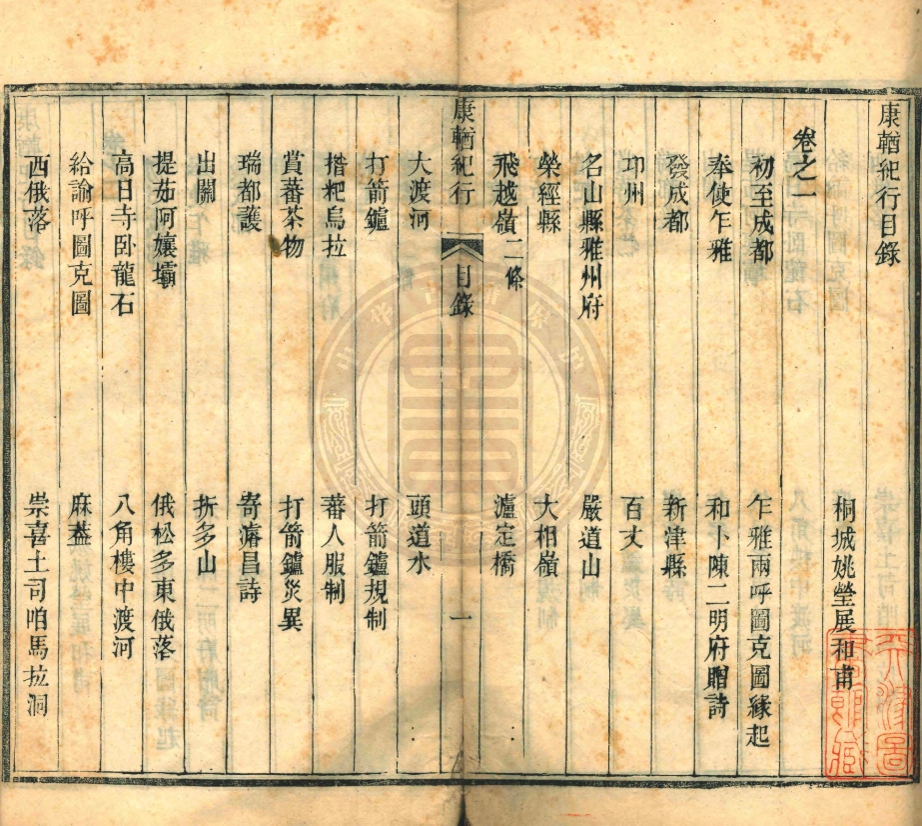 康輶紀行目錄
桐城姚瑩展和甫
卷之一
初至成都　乍雅兩呼圖克圖緣起
奉使乍雅　和卜陳二明府贈詩
發成都　新津縣
邛州　百丈
名山縣雅州府　嚴道山
榮經縣　大相嶺
飛越嶺二條　瀘定橋
康輶紀行　目錄　一
大渡河　頭道水
打箭鑪　打箭鑪規制
揩粑烏拉　蕃人服制
賞蕃茶物　打箭鑪災異
瑞都護　寄濬昌詩
出關　折多山
提茹阿孃壩　俄松多東俄落
高日寺卧龍石　八角樓中渡河
給諭呼圖克圖　麻葢
西俄落　崇喜土司咱馬拉洞